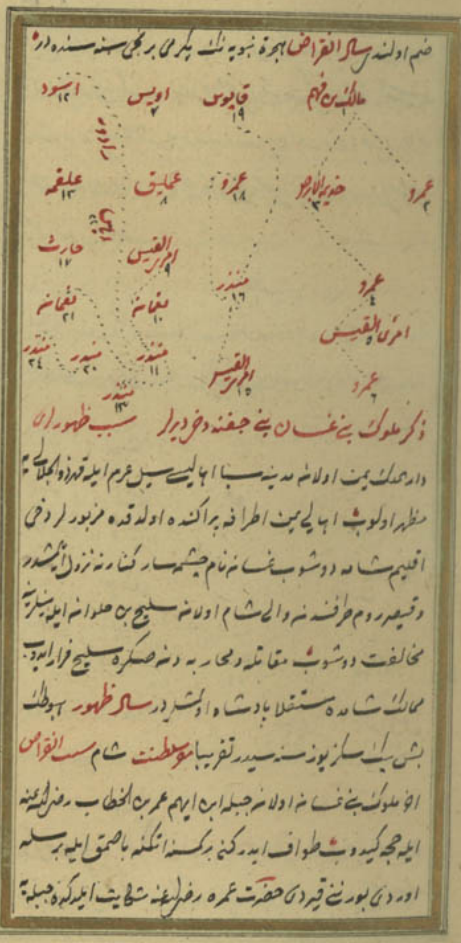 ضم اولندی سال انقراض هجرة نبویه نك یكرمی برنجی سنه سنده در
مالك بن فهم قابوس ١٩ اویس ٧ اسود ١٢
عمرو ٢ ٣ عمرو ١٨ عملیق ٨ علقمه ١٣
عمرو ٤ منذر ١٦ امرؤ القیس ٩ حارث ١٧
امرئ القیس ٥ نعمان ١٠ نعمان ٢١
عمرو ٦ امرؤ القیس ١٥ منذر ١١ منذر ٢٠ منذر ٢٤
منذر
ذكر ملوك بنی غسان بنی جفنه دخی دیرلر سبب ظهورلری
دار یمن اولان مدینه سبا اهالیسی سیل عرم ایله قهر ذو الجلاله
مظهر اولوب اهالی یمن اطرافه پراكنده اولدقده مزبورلر دخی
اقلیم شامه دوشوب غسان نام چشمه سار كنارنه نزول ایتمشدر
و قیصر روم طرفندن والی شام اولان سلیح بن حلوان ایله بینلرینه
مخالفت دوشوب مقاتله و محاربه دن صكره سلیح فرار ایدوب
ممالك شامده مستقلا پادشاه اولمشلردر سال ظهور هبوطك
بش بیك سكز یوز سنه سیدر تقریبا سلطنت شام سبب انقراض
اخر ملوك بنی غسان اولان جبله ابن ایهم عمر بن الخطاب رضی الله عنه
ایله حجه كیدوب طواف ایدركن بر كسنه اتكنه باصمق ایله بر سله
اوردی بورننی قیردی حضرت عمره رضی الله عنه شكایت ایلدكده جبله یه